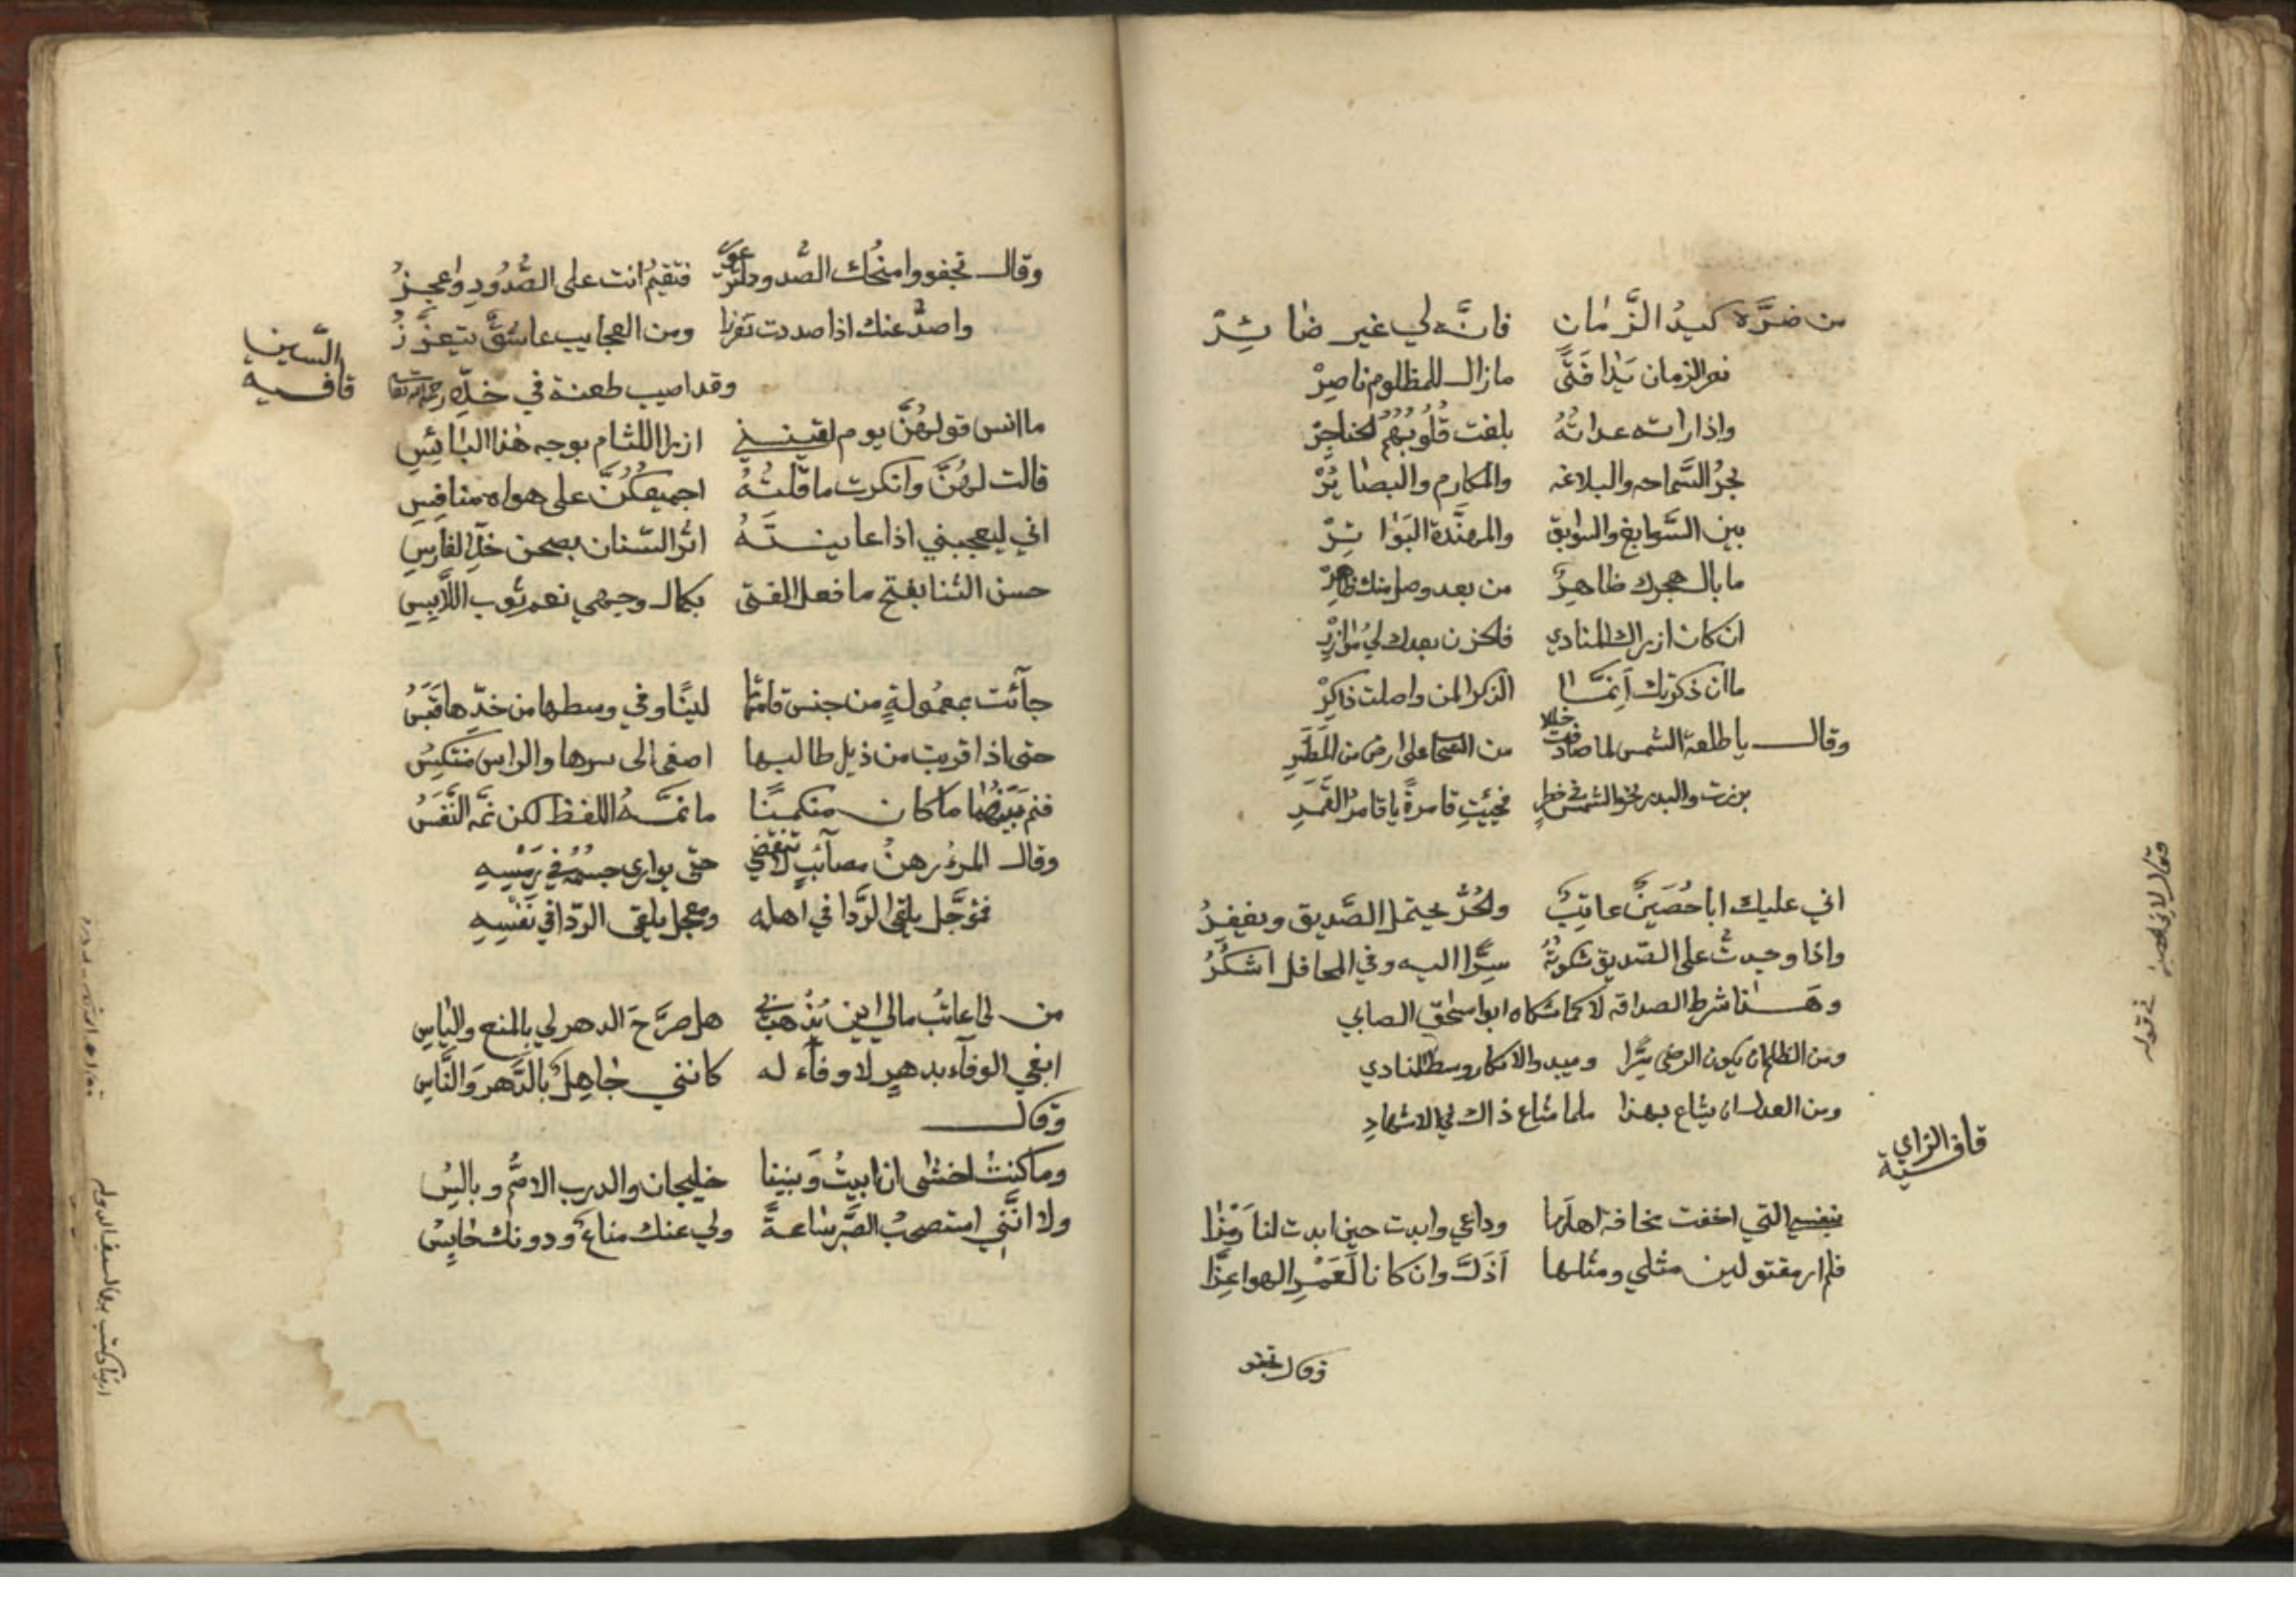 من ضرَّه كيدُ الزَّمان فانَّه لي غير ضائِرْ
نعم الزمان بذا فَتًى مازال للمظلوم ناصِرْ
واذا راته عداتُهُ بلغت قُلُوبُهُمُ الحناجِرْ
بحرُ السَّماحه والبلاغه والمكارم والبصائِرْ
بين السَّوابغ والسوابق والمهنَّدة البَوَاتِرْ
ما بال هجرك ظاهِرٌ من بعد وصل منك
ان كان ازبرك المنادي فالحزن بعدك لي مُوازِرْ
ما ان ذكرتك اِنمَّا الذكرا لمن واصلت ذاكِرْ
وقال يا طلعة الشمس لما صادفت خللا من على ارض من المَطَرِ
برزت والبدر نحو الشمس في خطرٍ فجيئتِ قامرةً يا قامرُ القَمَرِ
اني عليك ابا حُصَينٍ عاتِبٌ والحُرُّ يحتمل الصَّديق ويغفِرُ
واذا وجدتُ على الصّديق شكوتُهُ سِرًّا اليه وفي المحافل اشكُرُ
وهَذا شرط الصداقه لا كما شكاه ابو اسحٰق الصابي
ومن الظلم ان يكون الرضى سِّرًا ويبدو الانكار وسط النادي
ومن العدل ان يشاع بهذا مثلما شاع ذاك في الاشهادِ
قافية الزاي
بنفسي التي اخفت مخافة اهلها وداعي وابدت حين ابدت لنا رَمْزًا
فلم ار مقتولين مثلي ومثلها اَذَلَّ وان كانا لَعَمْرِ الهوا عِزَّا
وقال تجفو
فقال لابي الحصين في قوله
وقال تجفو وامنحُك الصُّدود فتقيمُ انت على الصُّدُودِ واعجزُ
واصدُّ عنك اذا صددت تعززا ومن العجايب عاشِقٌ يتعزَّزُ
قافية السّين
وقد اصيب طعنة في خدّه رحمه الله تعالى
ما انس قولهُنَّ يوم لقينني ازرا اللثام بوجه هذا البائِسِ
قالت لهُنَّ وانكرت ما قُلتُهُ اجميعكُنَّ على هواه منافِسِ
اني ليعجبني اذا عاينتَهُ اثر السّنان بصحن خدّ الفارِسِ
حسن الثنا بفتح ما فعل الفتى بكمال وجهي نعم ثوب اللَّابِسِ
جآئت بمعمُولةٍ من جنس قامتها لينًا وفي وسطها من خدّها قَبَسُ
حتى اذا قربت من ذيل طالبها اصغى الى سرها والراس منتكِسُ
فنم بَيْنَهُما ما كان منكمنًا ما نمَّهُ اللفظ لكن نمَّه النَّفَسُ
وقال المرءُ رهنُ مصآئبٍ لا تنقضي حتى يوارى جسمُهُ في رَمْسِهِ
فمُؤجَّل يلقى الرَّدا في اهله ومعجل يلقى الردّا في نَفْسِهِ
من لي اعاتبُ مالي اين يُذْهَبُ بي هل صرَّحَ الدهر لي بالمنع والياسِ
ابغي الوفآء بدهرٍ لا وفآء له كانني جَاهِلٌ بالدَّهر وَالنَّاسِ
وقال
وما كنتُ اخشى ان ابيتُ وَبيننا خليجان والدرب الاصمُّ وبالِسُ
ولا انَّنِي استصحبُ الصَّبر ساعةً ولي عنك مناعٌ ودونك حابِسُ